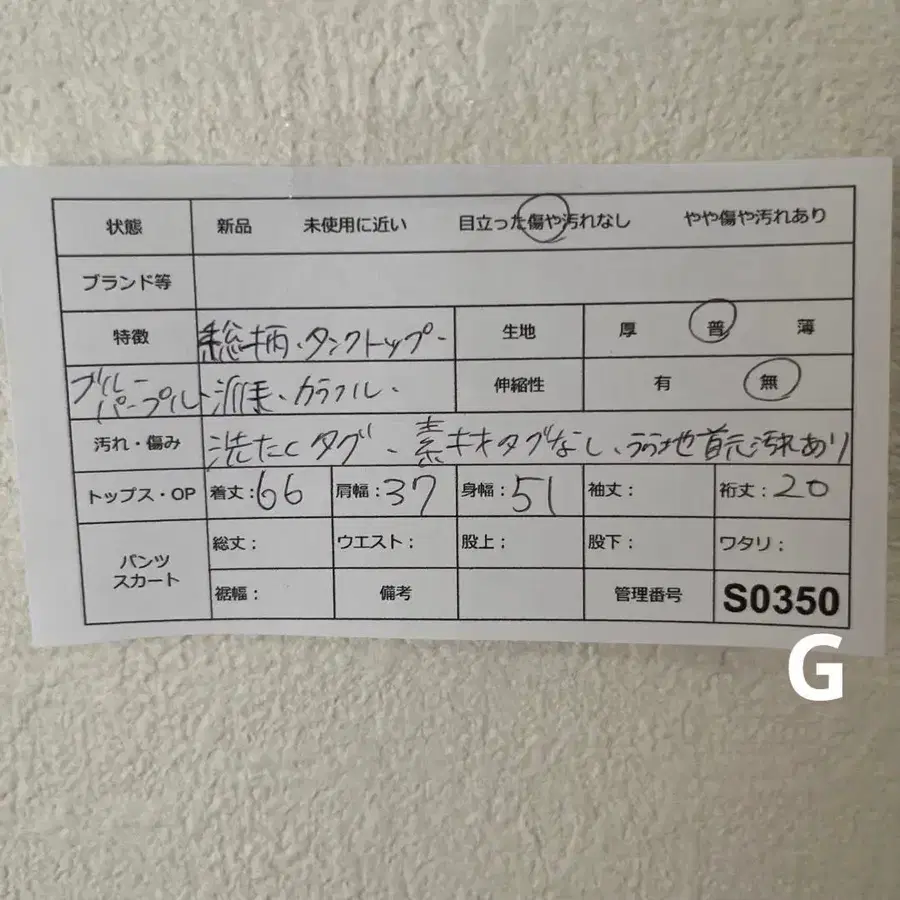 状態 新品 未使用に近い 目立った傷や汚れなし やや傷や汚れあり
ブランド等
特徴 総柄、タンクトップ、 生地 厚 普 薄
ブルー パープル、派手、カラフル、 伸縮性 有 無
汚れ・傷み 洗たくタグ、素材タグなし、うら地首元汚れあり
トップス・OP 着丈：66 肩幅：37 身幅：51 袖丈： 裄丈：20
パンツ スカート 総丈： ウエスト： 股上： 股下： ワタリ：
裾幅： 備考 管理番号 S0350
G